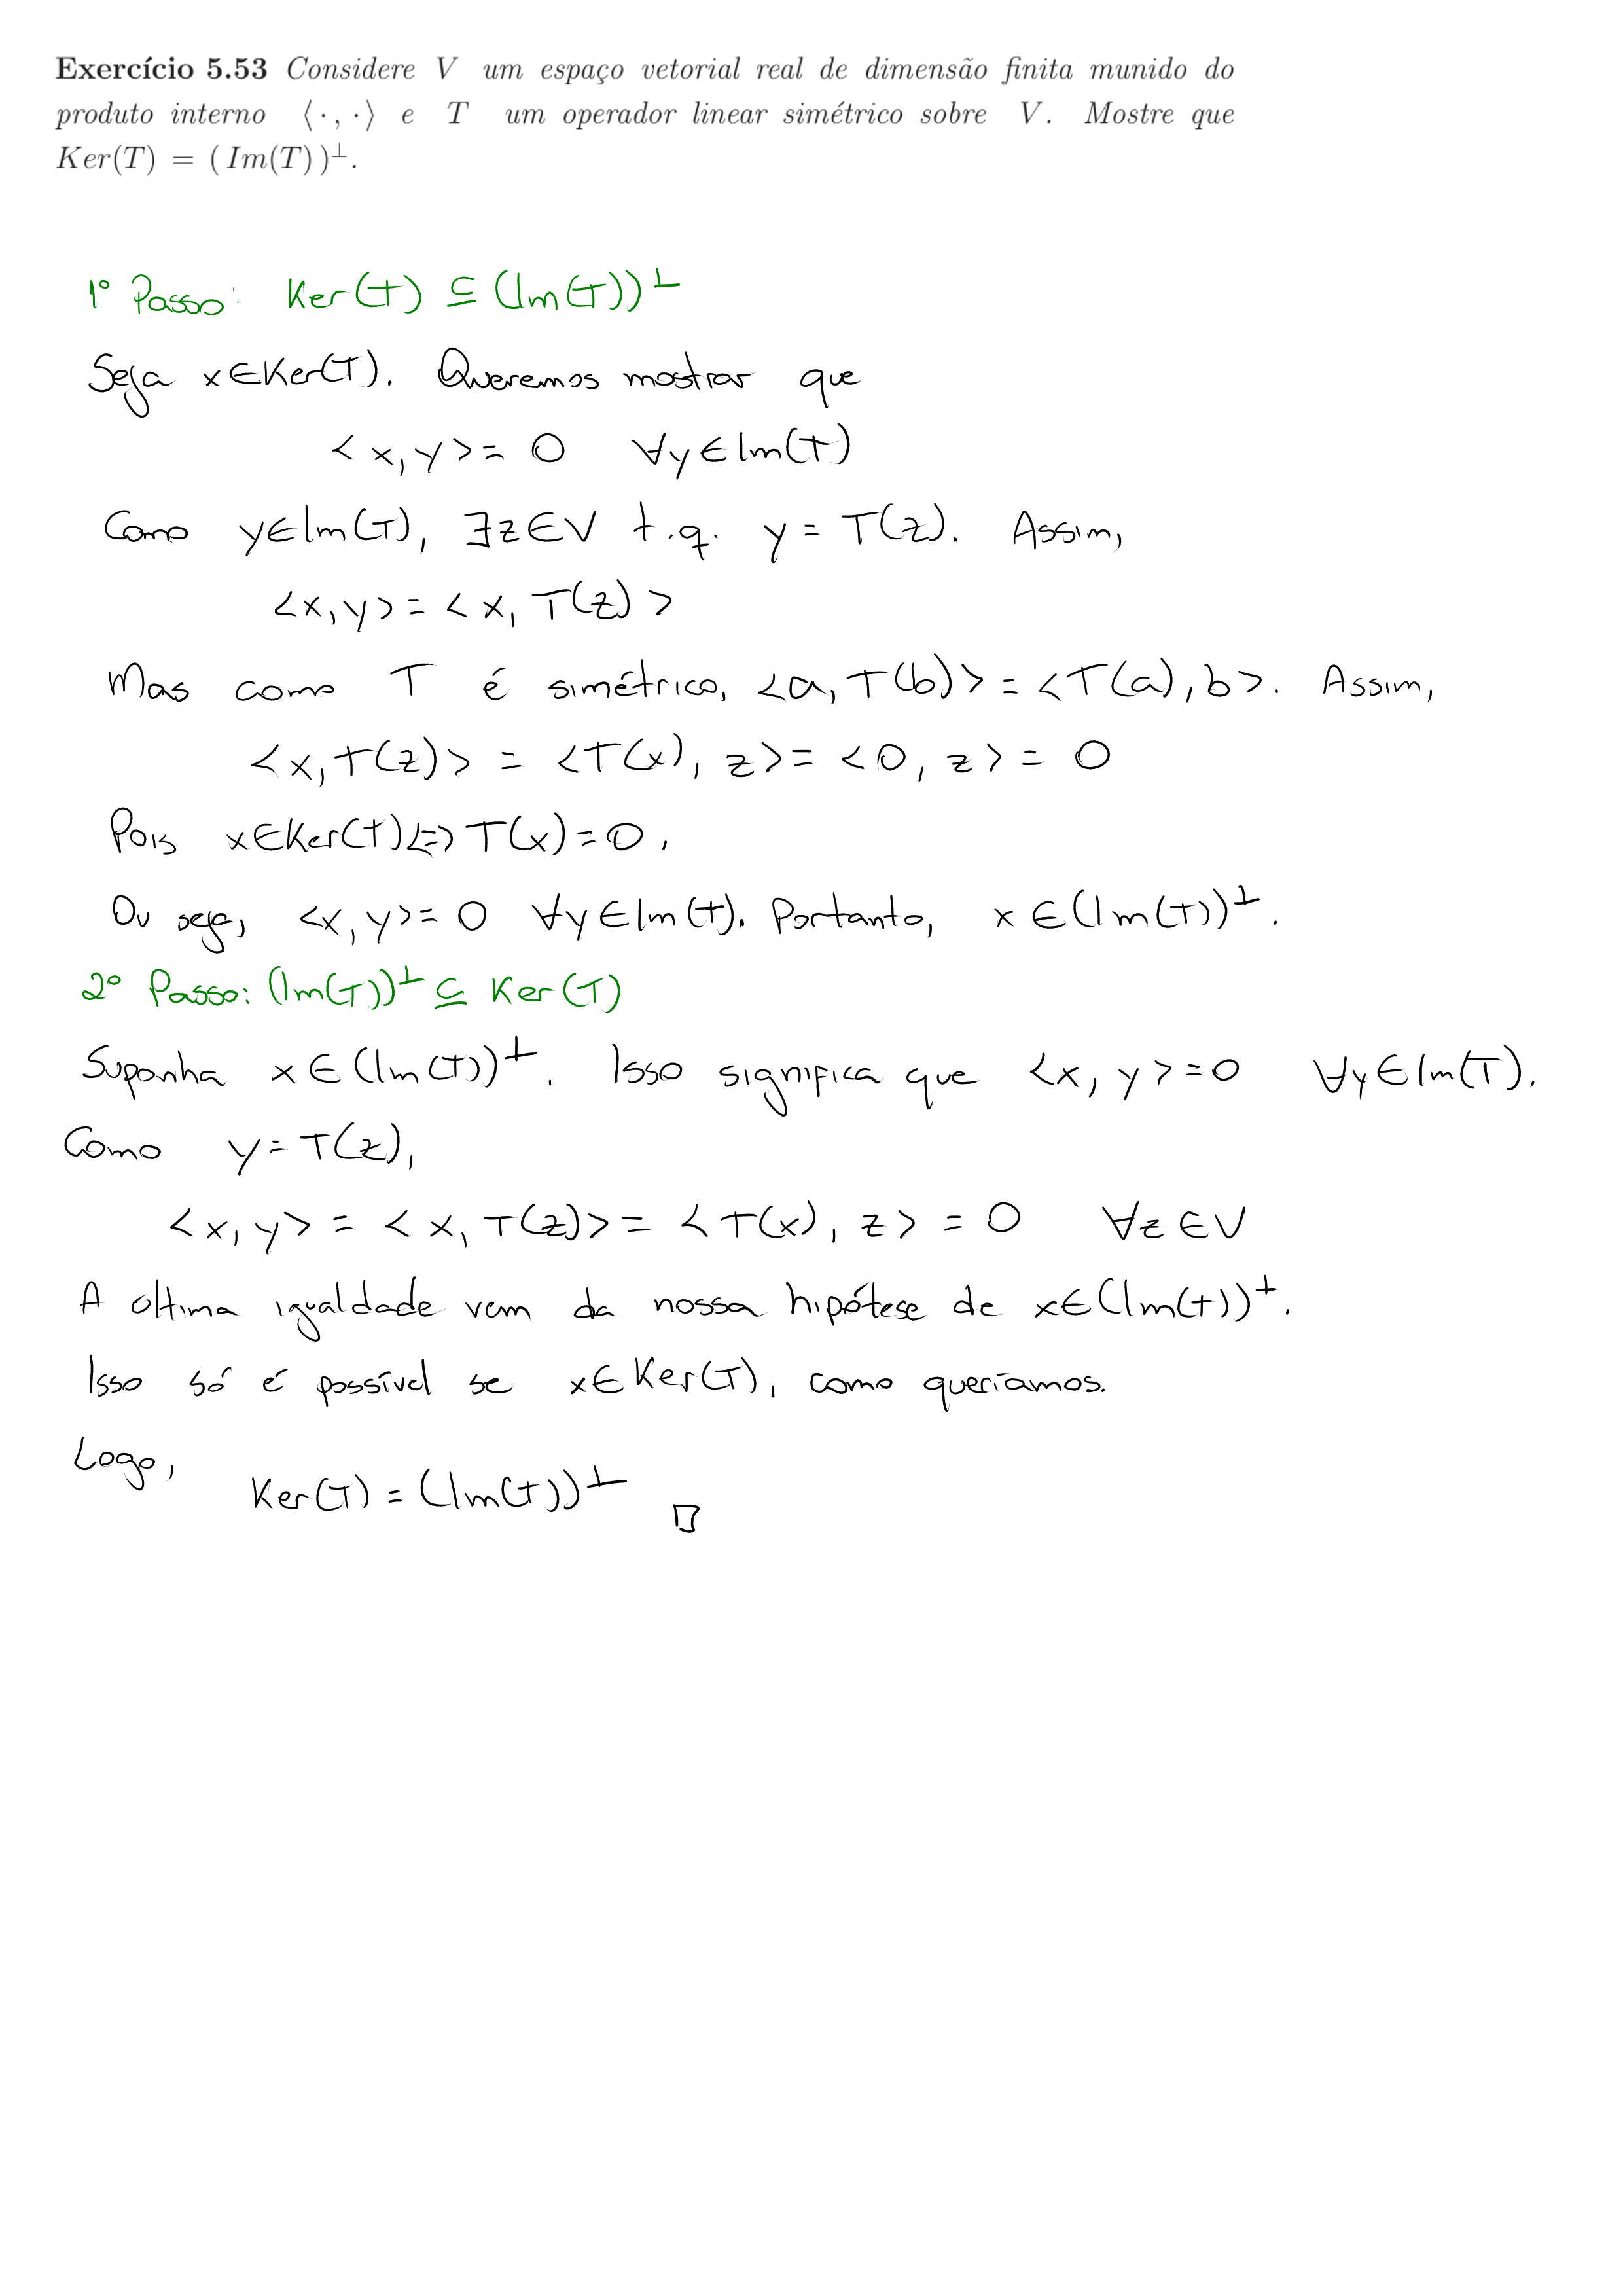 Exercício 5.53 Considere V um espaço vetorial real de dimensão finita munido do
produto interno ⟨ · , · ⟩ e T um operador linear simétrico sobre V. Mostre que
Ker(T) = ( Im(T) )⊥.
1º Passo: Ker(T) ⊆ (Im(T))⊥
Seja x∈Ker(T). Queremos mostrar que
<x,y>= 0 ∀y∈Im(T)
Como y∈Im(T), ∃z∈V t.q. y = T(z). Assim,
<x,y> = <x, T(z)>
Mas como T é simétrico, <a,T(b)> = <T(a),b>. Assim,
<x,T(z)> = <T(x), z> = <0, z> = 0
Pois x∈Ker(T)⇔T(x)=0.
Ou seja, <x,y>=0 ∀y∈Im(T). Portanto, x∈(Im(T))⊥.
2º Passo: (Im(T))⊥ ⊆ Ker(T)
Suponha x∈(Im(T))⊥. Isso significa que <x,y>=0 ∀y∈Im(T).
Como y=T(z),
<x,y> = <x,T(z)> = <T(x), z> = 0 ∀z∈V
A última igualdade vem da nossa hipótese de x∈(Im(T))⊥.
Isso só é possível se x∈Ker(T), como queríamos.
Logo,
Ker(T) = (Im(T))⊥ □